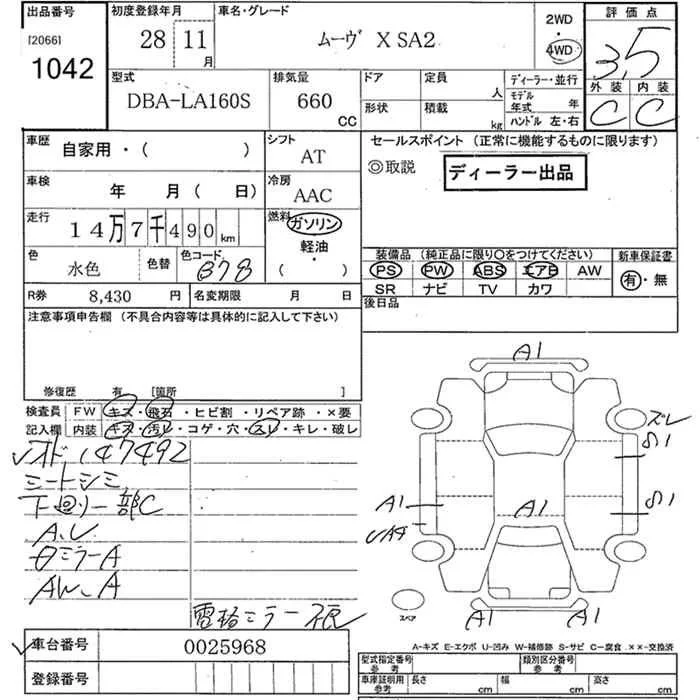 出品番号 初度登録年月 車名・グレード 2WD 評価点
[2066] 28 11 月 ムーヴ X SA2 4WD 3,5
1042
外装 内装
型式 排気量 ドア 定員 人 ディーラー・並行
DBA-LA160S 660 CC 形状 積載 kg モデル年式 年 C C
ハンドル 左・右
車歴 自家用・( ) シフト AT
セールスポイント (正常に機能するものに限ります)
◎取説 ディーラー出品
車検 年 月( 日) 冷房 AAC
走行 14万7千490km 燃料 ガソリン
軽油・
( )
色 水色 色替 色コード B78
装備品 (純正品に限り○をつけてください) 新車保証書
PS PW ABS エアB AW 有・無
SR ナビ TV カワ
R券 8,430 円 名変期限 月 日
後日品
注意事項申告欄 (不具合内容等は具体的に記入して下さい)
修復歴 有 [箇所 ]
検査員 FW キズ・飛石・ヒビ割・リペア跡・×要
記入欄 内装 キズ・汚レ・コゲ・穴・スレ・キレ・破レ
A1
ズレ
オド 147492
シートシミ
下廻り一部C
A1 A1
AW.A
電格ミラー
A1 A1
スペア
車台番号 0025968
A-キズ E-エクボ U-凹み W-補修跡 S-サビ C-腐食 ××-交換済
登録番号
型式指定番号 参考 類別区分番号 参考
車庫証明用 参考 長さ cm 幅 cm 高さ cm